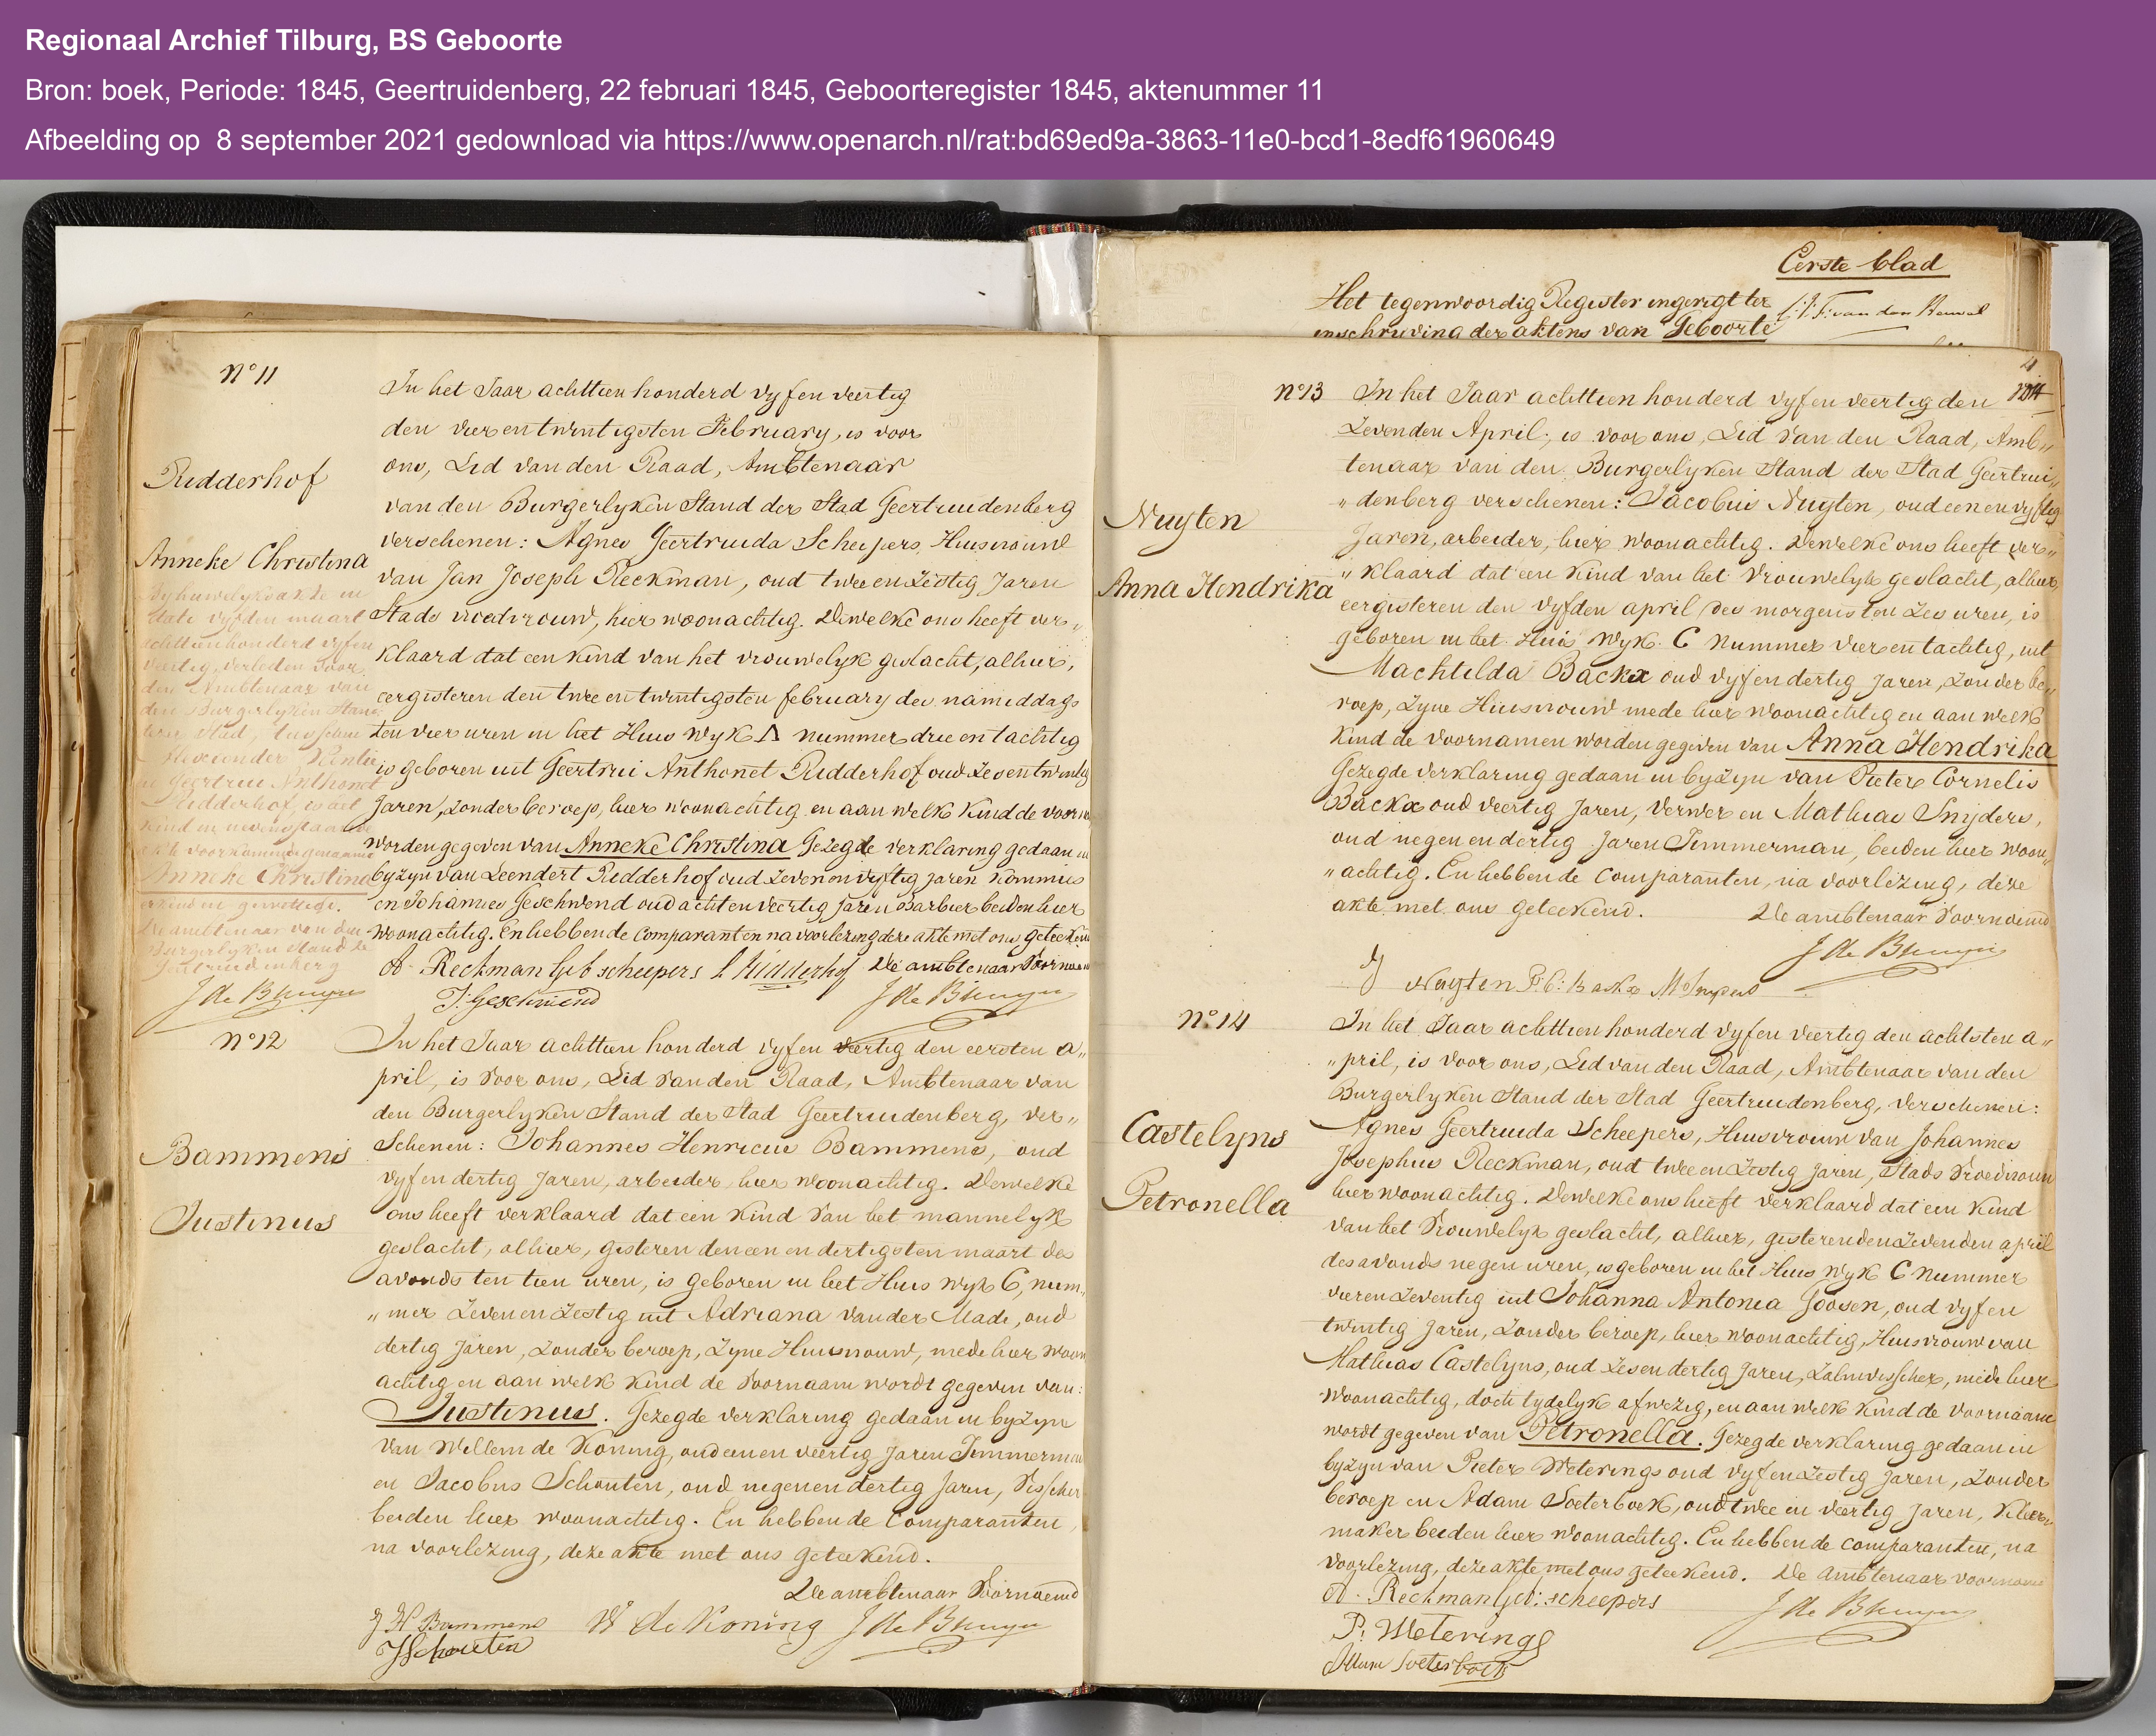 Regionaal Archief Tilburg, BS Geboorte
Bron: boek, Periode: 1845, Geertruidenberg, 22 februari 1845, Geboorteregister 1845, aktenummer 11
Afbeelding op 8 september 2021 gedownload via https://www.openarch.nl/rat:bd69ed9a-3863-11e0-bcd1-8edf61960649
N° 11
Ridderhof
Anneke Christina
By huwelyksakte in
date vyfden maart
achttienhonderd vyfen
veertig, verleden voor
den Ambtenaar van
den Burgerlyken Stand
dezer Stad, tusschen
en Geertrui Anthonet
Ridderhof, is het
kind in nevenstaande
akte voorkomende genaamd
Anneke Christina
erkend en gewettigd.
De ambtenaar van den
Burgerlyken Stand te
Geertruidenberg
J de Bruyn
In het Jaar achttien honderd vyf en veertig
den vier en twintigsten February, is voor
ons, Lid van den Raad, Ambtenaar
van den Burgerlyken Stand der Stad Geertruidenberg
verschenen: Agnes Geertruida Scheepers, Huisvrouw
van Jan Joseph Reckman, oud twee en Zestig Jaren
Stads vroedvrouw, hier woonachtig. Dewelke ons heeft ver„
klaard dat een kind van het vrouwelyk geslacht, alhier,
eergisteren den twee en twintigsten february des namiddags
ten vier uren in het Huis Wyk A nummer drie en tachtig
is geboren uit Geertrui Anthonet Ridderhof oud Zeven twintig
Jaren, zonder beroep, hier woonachtig en aan welk Kind de voorn
worden gegeven van Anneke Christina Gezegde verklaring gedaan in
byzyn van Leendert Ridderhof oud Zeven en vyftig jaren Kommies
en Johannes Geschwend oud acht en veertig Jaren Barbier beiden hier
woonachtig. En hebben de Comparanten na voorlezing deze akte met ons geteekend
A. Reckman Geb scheepers L Ridderhof De ambtenaar Voornoemd
J: Geschwend J de Bruyn
N° 12
Bammens
Justinus
In het Jaar achttien honderd vyf en veertig den eersten a„
pril, is voor ons, Lid van den Raad, Ambtenaar van
den Burgerlyken Stand der Stad Geertruidenberg, ver„
Schenen: Johannes Henricus Bammens, oud
vyf en dertig Jaren, arbeider, hier woonachtig. Dewelke
ons heeft verklaard dat een Kind van het mannelyk
geslacht, alhier, gisteren den een en dertigsten maart des
avonds ten tien uren, is geboren in het Huis Wyk C, num„
„mer Zeven en Zestig uit Adriana van der Made, oud
dertig Jaren, Zonder beroep, Zyne Huisvrouw, mede hier woon
achtig en aan welk Kind de Voornaam wordt gegeven van:
Justinus. Gezegde verklaring gedaan in byzyn
van Willem de Koning, oud een en veertig Jaren Timmerman
en Jacobus Schouten, oud negen en dertig Jaren, Visscher
beiden hier woonachtig. En hebben de Comparanten,
na voorlezing, deze akte met ons geteekend.
De ambtenaar Voornoemd
J H Bammens W de Koning J de Bruyn
J Schouten
Eerste blad
Het tegenwoordig Register ingerigt ter
inschryving der aktens van Geboorte
4
N° 13
Nuyten
Anna Hendrika
In het Jaar achttien honderd vyf en veertig den
Zevenden April, is voor ons, Lid van den Raad, Amb„
tenaar van den Burgerlyken Stand der Stad Geertrui„
„denberg verschenen: Jacobus Nuyten, oud een en vyftig
Jaren, arbeider, hier woonachtig. Dewelke ons heeft ver„
„klaard dat een Kind van het Vrouwelyk geslacht, alhier,
eergisteren den vyfden april des morgens ten Zes uren, is
geboren in het Huis Wyk C Nummer vier en tachtig, uit
Machtilda Backx oud vyf en dertig Jaren, Zonder be„
roep, Zyne Huisvrouw mede hier woonachtig en aan welk
Kind de voornamen worden gegeven van Anna Hendrika
Gezegde verklaring gedaan in byzyn van Pieter Cornelis
Backx oud veertig Jaren, Verwer en Mathias Snyders,
oud negen en dertig Jaren Timmerman, beiden hier woon„
„achtig. En hebben de Comparanten, na voorlezing, deze
akte met ons geteekend. De ambtenaar Voornoemd
J de Bruyn
J Nuyten P: C: Backx M Snyders
N° 14
Castelyns
Petronella
In het Jaar achttien honderd vyf en veertig den achtsten a„
„pril, is voor ons, Lid van den Raad, Ambtenaar van den
Burgerlyken Stand der Stad Geertruidenberg, verschenen:
Agnes Geertruida Scheepers, Huisvrouw van Johannes
Josephus Reckman, oud twee en Zestig Jaren, Stads Vroedvrouw
hier woonachtig. Dewelke ons heeft verklaard dat een Kind
van het Vrouwelyk geslacht, alhier, gisteren den Zevenden april
des avonds negen uren, is geboren in het Huis Wyk C Nummer
vier en Zeventig uit Johanna Antonia Goosen, oud vyf en
twintig Jaren, Zonder beroep, hier woonachtig, Huisvrouw van
Mathias Castelyns, oud Zes en dertig Jaren, Zalmvisscher, mede hier
woonachtig, doch tydelyk afwezig, en aan welk Kind de voornaam
wordt gegeven van Petronella. Gezegde verklaring gedaan in
byzyn van Pieter Weterings oud vyf en Zestig Jaren, Zonder
beroep en Adam Soeterboek, oud twee en veertig Jaren, Kleer„
maker beiden hier woonachtig. En hebben de comparanten, na
voorlezing, deze akte met ons geteekend. De ambtenaar voornoemd
A. Reckman Geb: scheepers J de Bruyn
P: Weterings
Adam Soeterboek